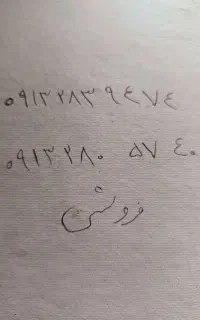 ۰۹۱۳۲۸۳۹۴۷۴
۰۹۱۳۲۸۰ ۵۷ ۴۰
فروشی